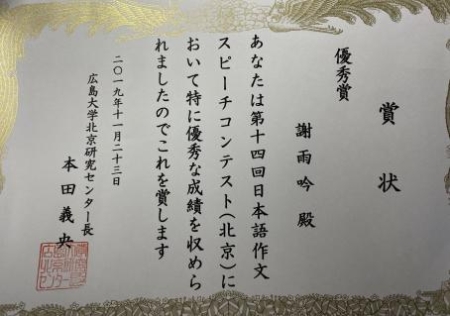 賞状
優秀賞
謝雨吟 殿
あなたは第十四回日本語作文
スピーチコンテスト(北京)に
おいて特に優秀な成績を収めら
れましたのでこれを賞します
二〇一九年十一月二十三日
広島大学北京研究センター長
本田義央